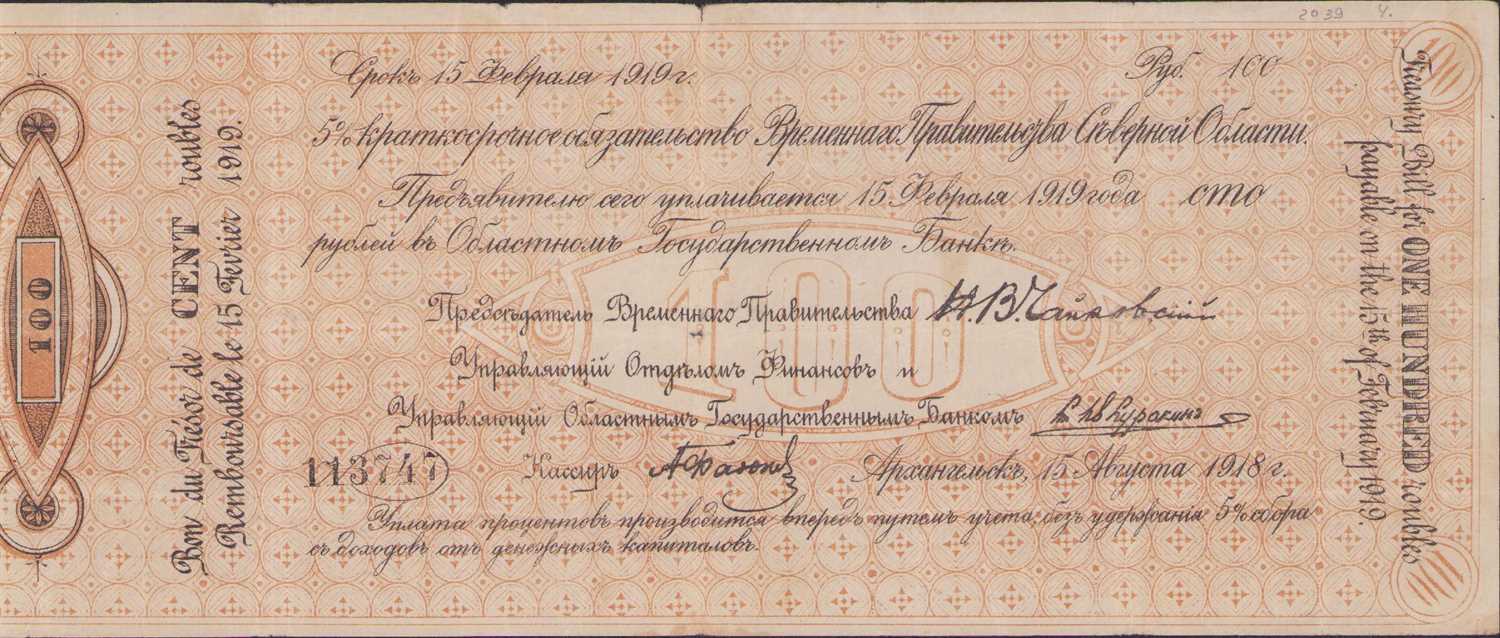 2039 4.
Срокъ 15 Февраля 1919 г. Руб. 100
5% краткосрочное обязательство Временнаго Правительства Сѣверной Области.
Предъявителю сего уплачивается 15 Февраля 1919 года сто
рублей въ Областномъ Государственномъ Банкѣ.
100
Предсѣдатель Временнаго Правительства Н. В. Чайковскій
Управляющій Отдѣломъ Финансовъ и
Управляющій Областнымъ Государственнымъ Банкомъ
113747 Кассиръ Архангельскъ, 15 Августа 1918 г.
Уплата процентовъ производится впередъ путемъ учета, безъ удержанія 5% сбора
съ доходовъ отъ денежныхъ капиталовъ.
100
Bon du Trésor de CENT roubles
Remboursable le 15 Fevrier 1919.
Treasury Bill for ONE HUNDRED roubles
payable on the 15th of February 1919.